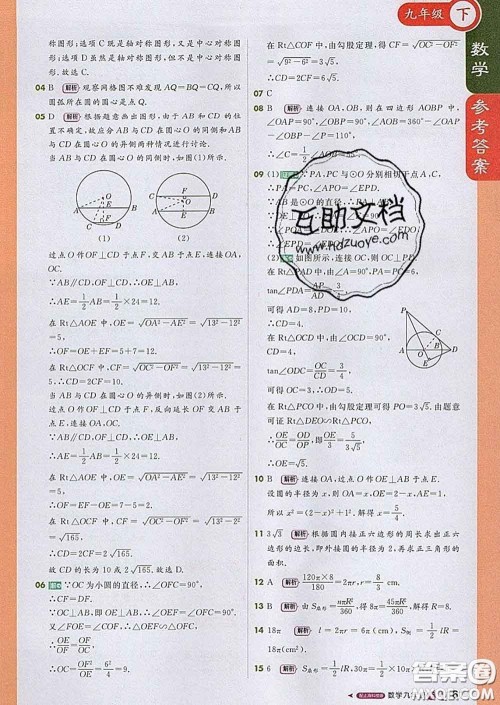 九年级 下
数学 参考答案
称图形;选项 C 既是轴对称图形,又是中心对称图
形;选项 D 虽然是轴对称图形,但不是中心对称图
形。故选 C.
04 B 解析 观察网格图不难发现 AQ=BQ=CQ,所以
圆弧所在圆的圆心是点 Q.
05 D 解析 根据题意画出图形,由于 AB 和 CD 的位
置不确定,故应分 AB 与 CD 在圆心 O 的同侧和
AB 与 CD 在圆心 O 的异侧两种情况进行讨论.
当 AB 与 CD 在圆心 O 的同侧时,如图(1)所示.
(1) (2)
过点 O 作 OF⊥CD 于点 F,交 AB 于点 E,连接 OA,
OC.
∵AB∥CD,∴OE⊥AB,
∴AE=1/2AB=1/2×24=12.
在 Rt△AOE 中,OE=√(OA²−AE²)=√(13²−12²)
=5,
∴OF=OE+EF=5+7=12.
在 Rt△OCF 中,CF=√(OC²−OF²)=√(13²−12²)
=5,∴CD=2CF=10.
当 AB 与 CD 在圆心 O 的异侧时,如图(2)所示.
过点 O 作 OF⊥CD 于点 F,反向延长 OF 交 AB
于点 E,连接 OA,OC.
∵AB∥CD,∴OE⊥AB,
∴AE=1/2AB=1/2×24=12.
在 Rt△AOE 中,OE=√(OA²−AE²)=√(13²−12²)
=5,
∴OF=EF−OE=7−5=2.
在 Rt△OCF 中,CF=√(OC²−OF²)=√(13²−2²)
=√165,
∴CD=2CF=2√165.
故 CD 的长为 10 或 2√165.故选 D.
06 ∵OC 为小圆的直径,∴∠OFC=90°,
∴CF=DF.
∵OC⊥AB,即 OE⊥AB,∴∠OEF=∠OFC=90°.
又∵∠FOE=∠COF,∴△OEF∽△OFC,
∴OE/OF=OF/OC,
∴OC=OF²/OE=6²/4=9.
在 Rt△COF 中,由勾股定理,得 CF=√(OC²−OF²)
=√(9²−6²)=3√5,
∴CD=2CF=6√5.
07 C
08 B 解析 连接 OA,OB,则在四边形 AOBP 中,
∠OAP=∠OBP=90°,∠AOB=360°−∠OAP−
∠OBP−∠P=110°,
∴∠C=1/2∠AOB=55°.
09 (1) ∵PA,PC 与⊙O 分别相切于点 A,C,
∴∠APO=∠EPD.
∵AB 是⊙O 的直径,
(2) 如图所示,连接 OC,则 OC⊥PD.
tan∠PDA=
可得 AD=8,PD=10,
∴CD=4.
tan∠ODC=OC/CD=3/4,
可得 OC=3,∴OA=3.
在 Rt△PCO 中,由勾股定理可得 PO=3√5.由题意
可证 Rt△DEO∽Rt△PCO,
∴OE/OC=OD/PO,即 OE/3=5/(3√5),
∴OE=√5.
10 B 解析 连接 OA,过点 O 作 OE⊥AB 于点 E.
设圆的半径为 x,则 OA=x,OE=x−1.
所以 x²=(x−1)²+1².解得 x=1.
11 3√3 解析 根据圆内接正六边形的周长求出正六
边形的边长,即外接圆的半径为 2,再求正三角形的
面积.
12 A 解析 120π×8/180=2πr,r=8/3 cm.
13 B 解析 由 S扇形=nπR²/360,得 8π=45πR²/360,解得 R=8.
14 18π 解析 l=2πr=6π(cm),S侧=1/2lR=1/2×6π×6=
18π(cm²).
15 6 解析 S扇形=1/2lR,30π=1/2×10
互助文档
www.hdzuoye.com
数学九年
答案圈